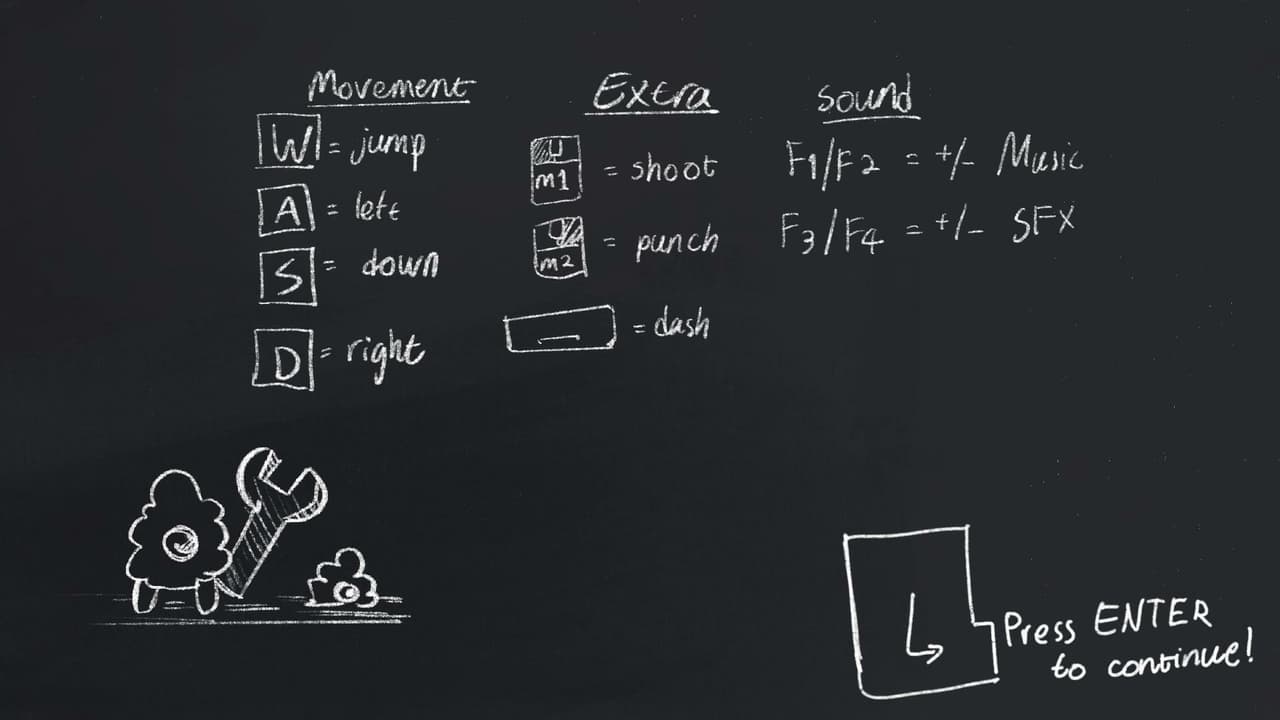 Movement
W = jump
A = left
S = down
D = right
Extra
m1 = shoot
m2 = punch
= dash
Sound
F1/F2 = +/- Music
F3/F4 = +/- SFX
Press ENTER
to continue!